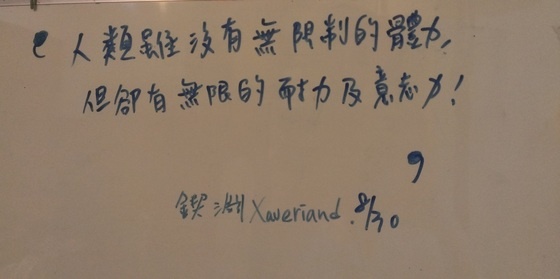 人類雖沒有無限制的體力,
但卻有無限的耐力及意志力!
鍥澍 Xaveriand. 8/30